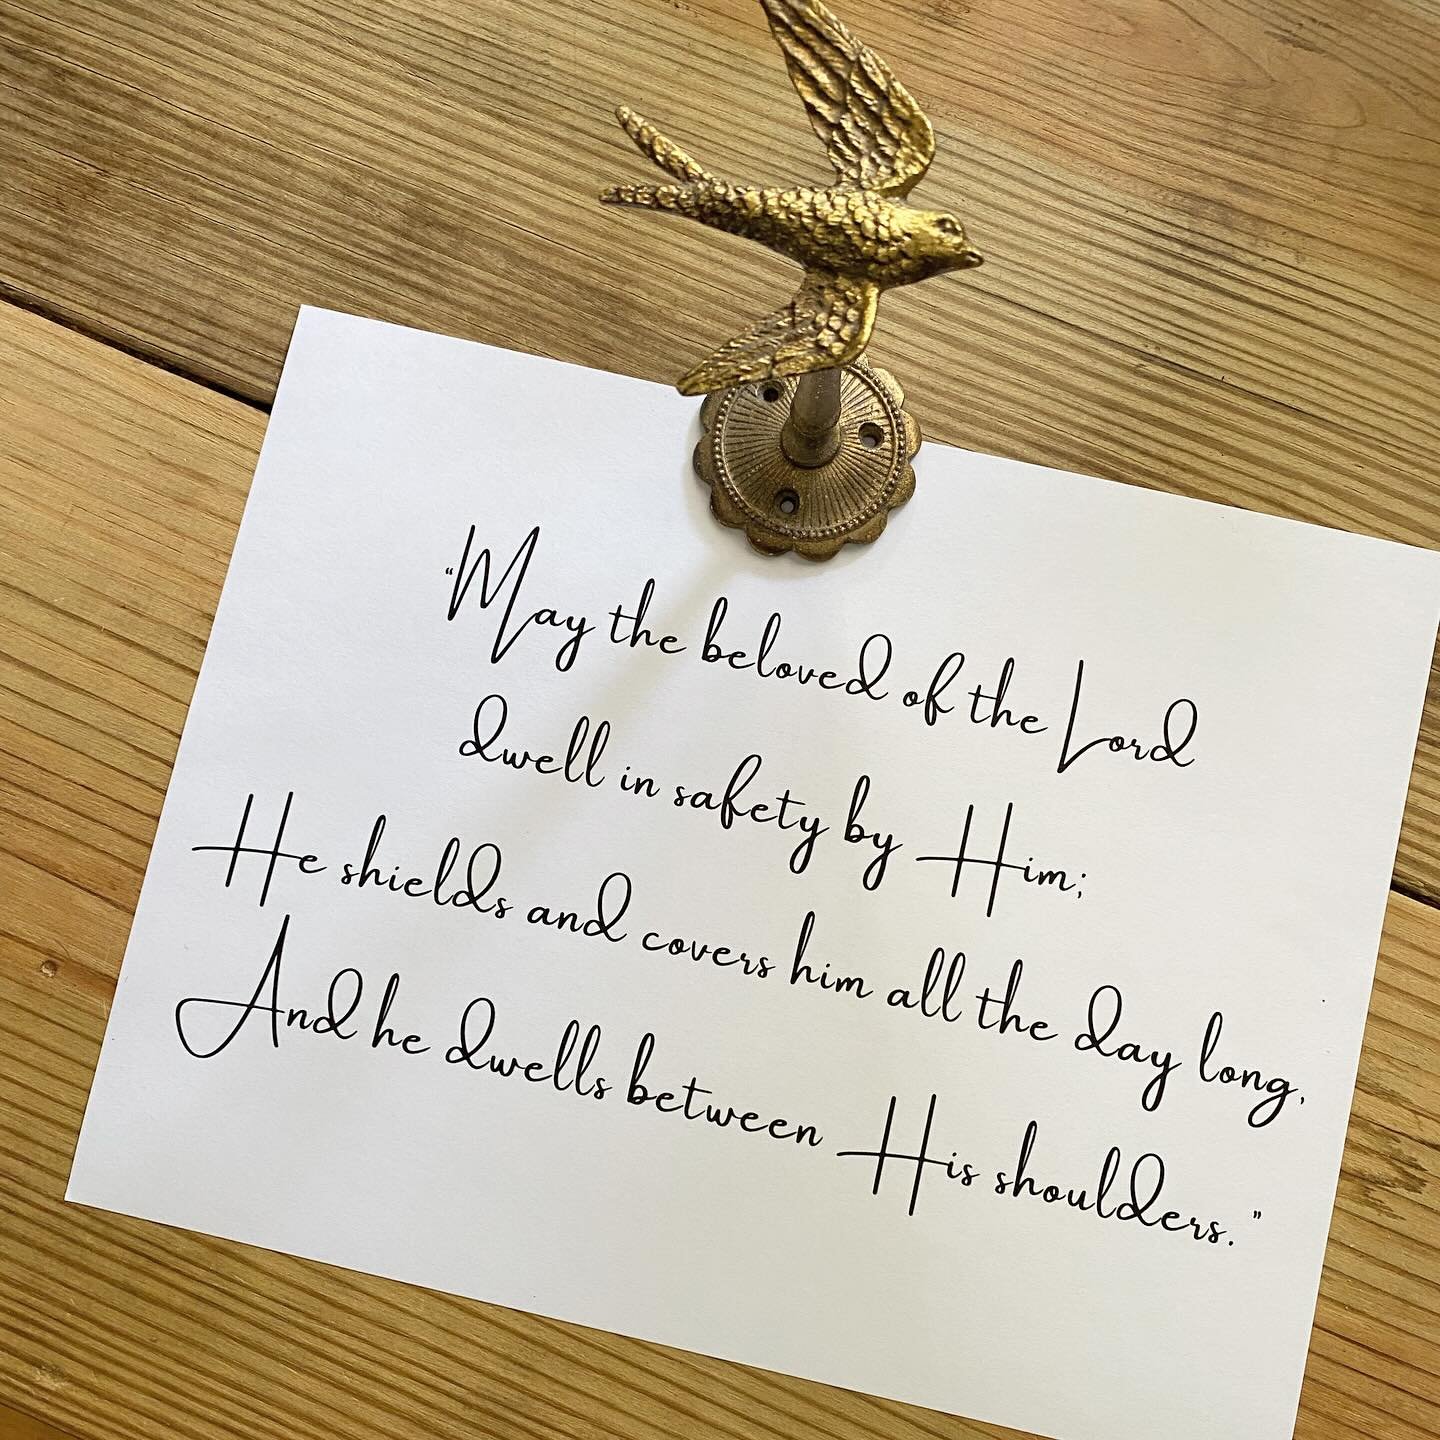 "May the beloved of the Lord
dwell in safety by Him;
He shields and covers him all the day long,
And he dwells between His shoulders."